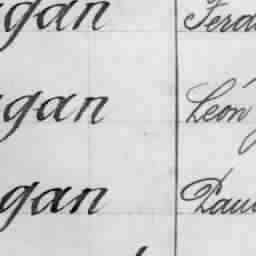 gan Ferd
gan León
gan Paul